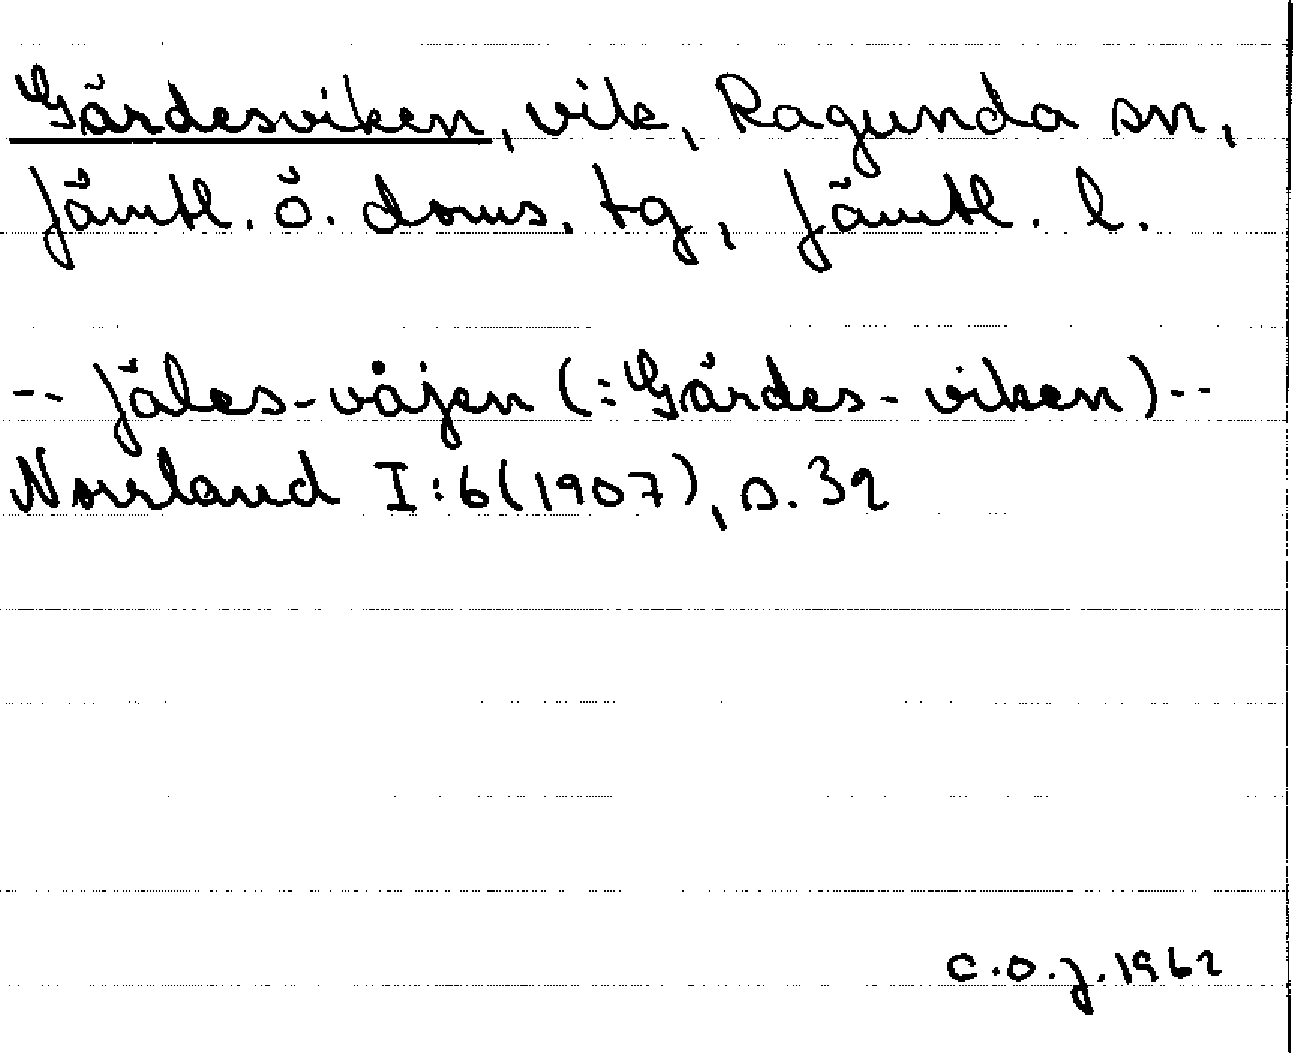 Gärdesviken, vik, Ragunda sn,
Jämtl. ö. doms. tg, Jämtl. l.
-- Jäles-våjen (: Gärdes-viken) --
Norrland I:6(1907), s. 32
C.O.J. 1962